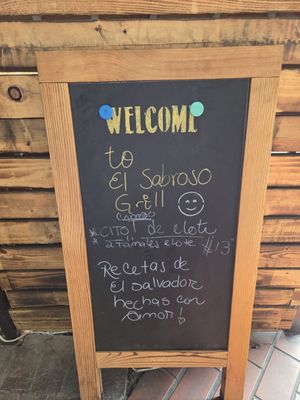 WELCOME
to
El Sabroso
Grill
COMBO
* de elote
* 2 tamales elote $13
Recetas de
El Salvador
hechas con
Amor!